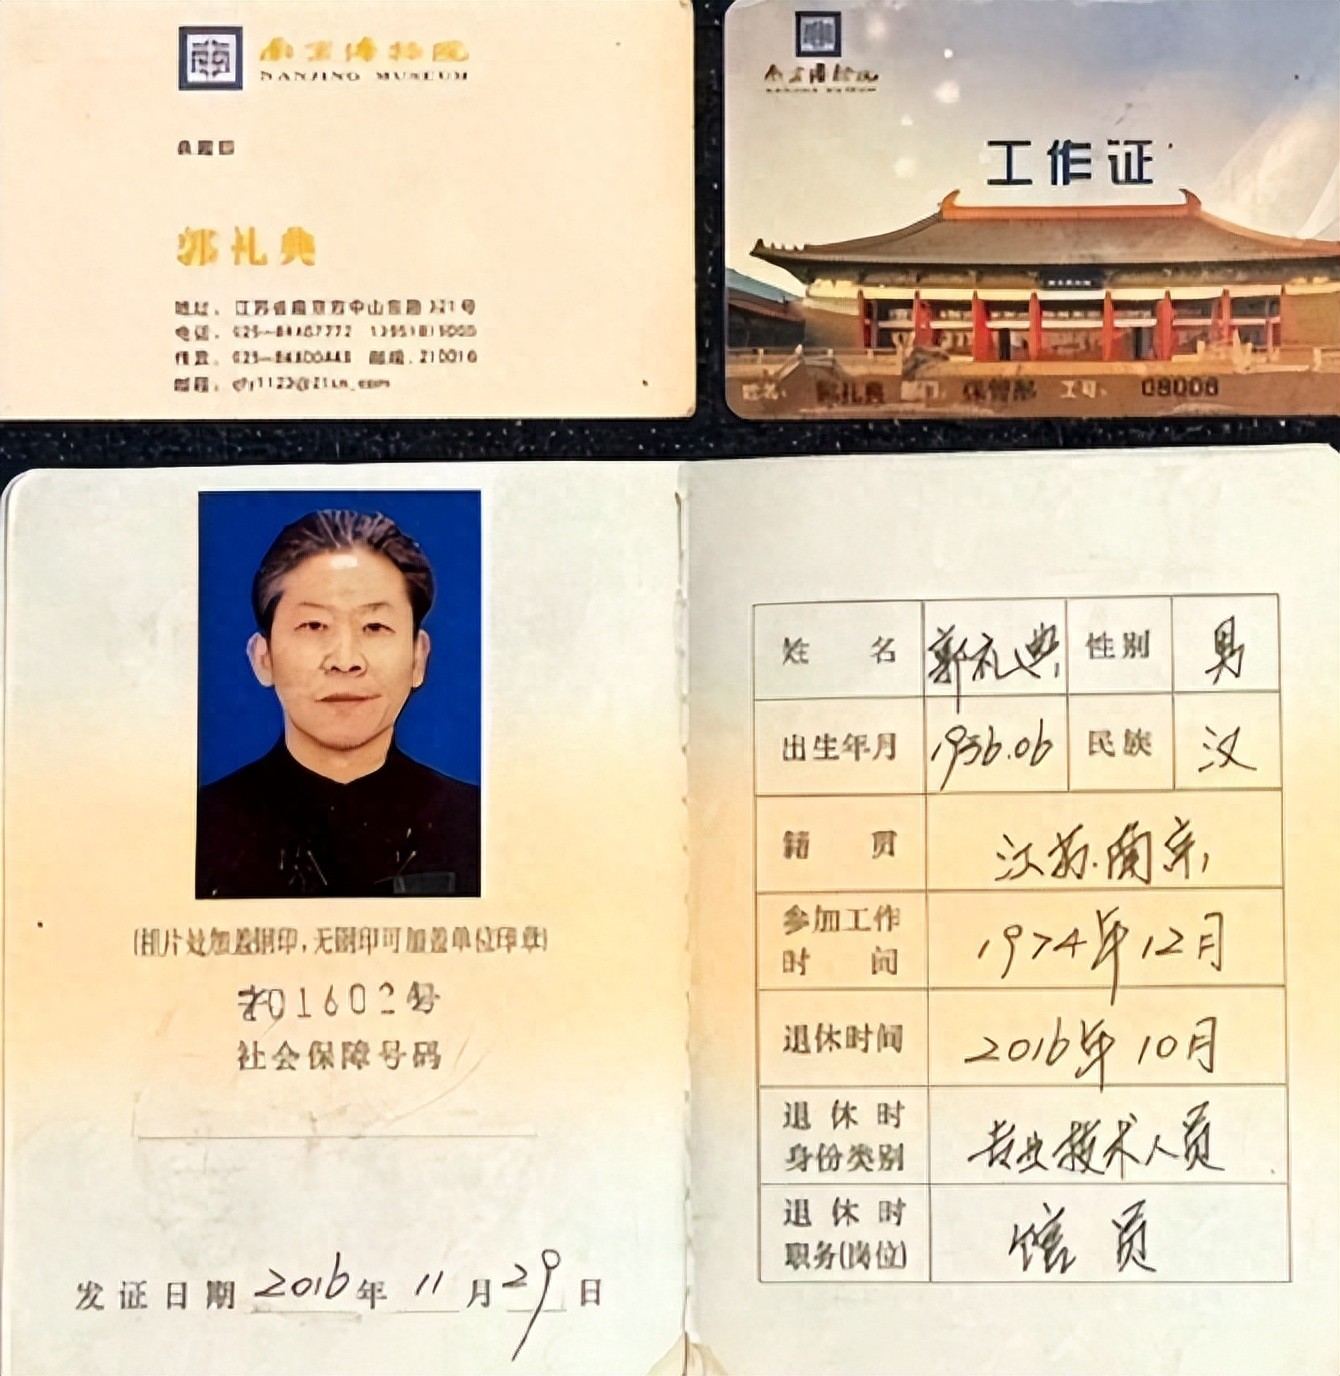 南京博物院
NANJING MUSEUM
郭礼典
地址：江苏省南京市中山东路321号
电话：
传真： 邮编：210016
邮箱：
南京博物院
NANJING MUSEUM
工作证
姓名：郭礼典 部门：保管部 工号：08006
(相片处加盖钢印,无钢印可加盖单位印章)
201602号
社会保障号码
发证日期 2016年 11月29日
姓名 郭礼典 性别 男
出生年月 1956.06 民族 汉
籍贯 江苏.南京
参加工作时间 1974年12月
退休时间 2016年10月
退休时身份类别 专业技术人员
退休时职务(岗位) 馆员